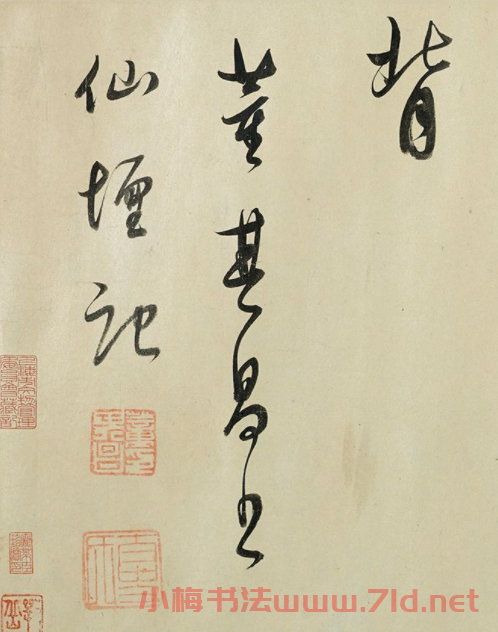 背
董其昌書
仙壇記
小梅书法www.7ld.net